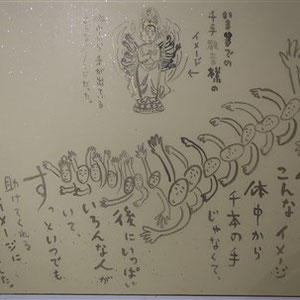 いままでの
千手観音様の
イメージ
こんなイメージ
体中から
千本の手
じゃなくて、
後にいっぱい
いろんな人が
いて、
ずっといつでも
助けてくれる
イメージに